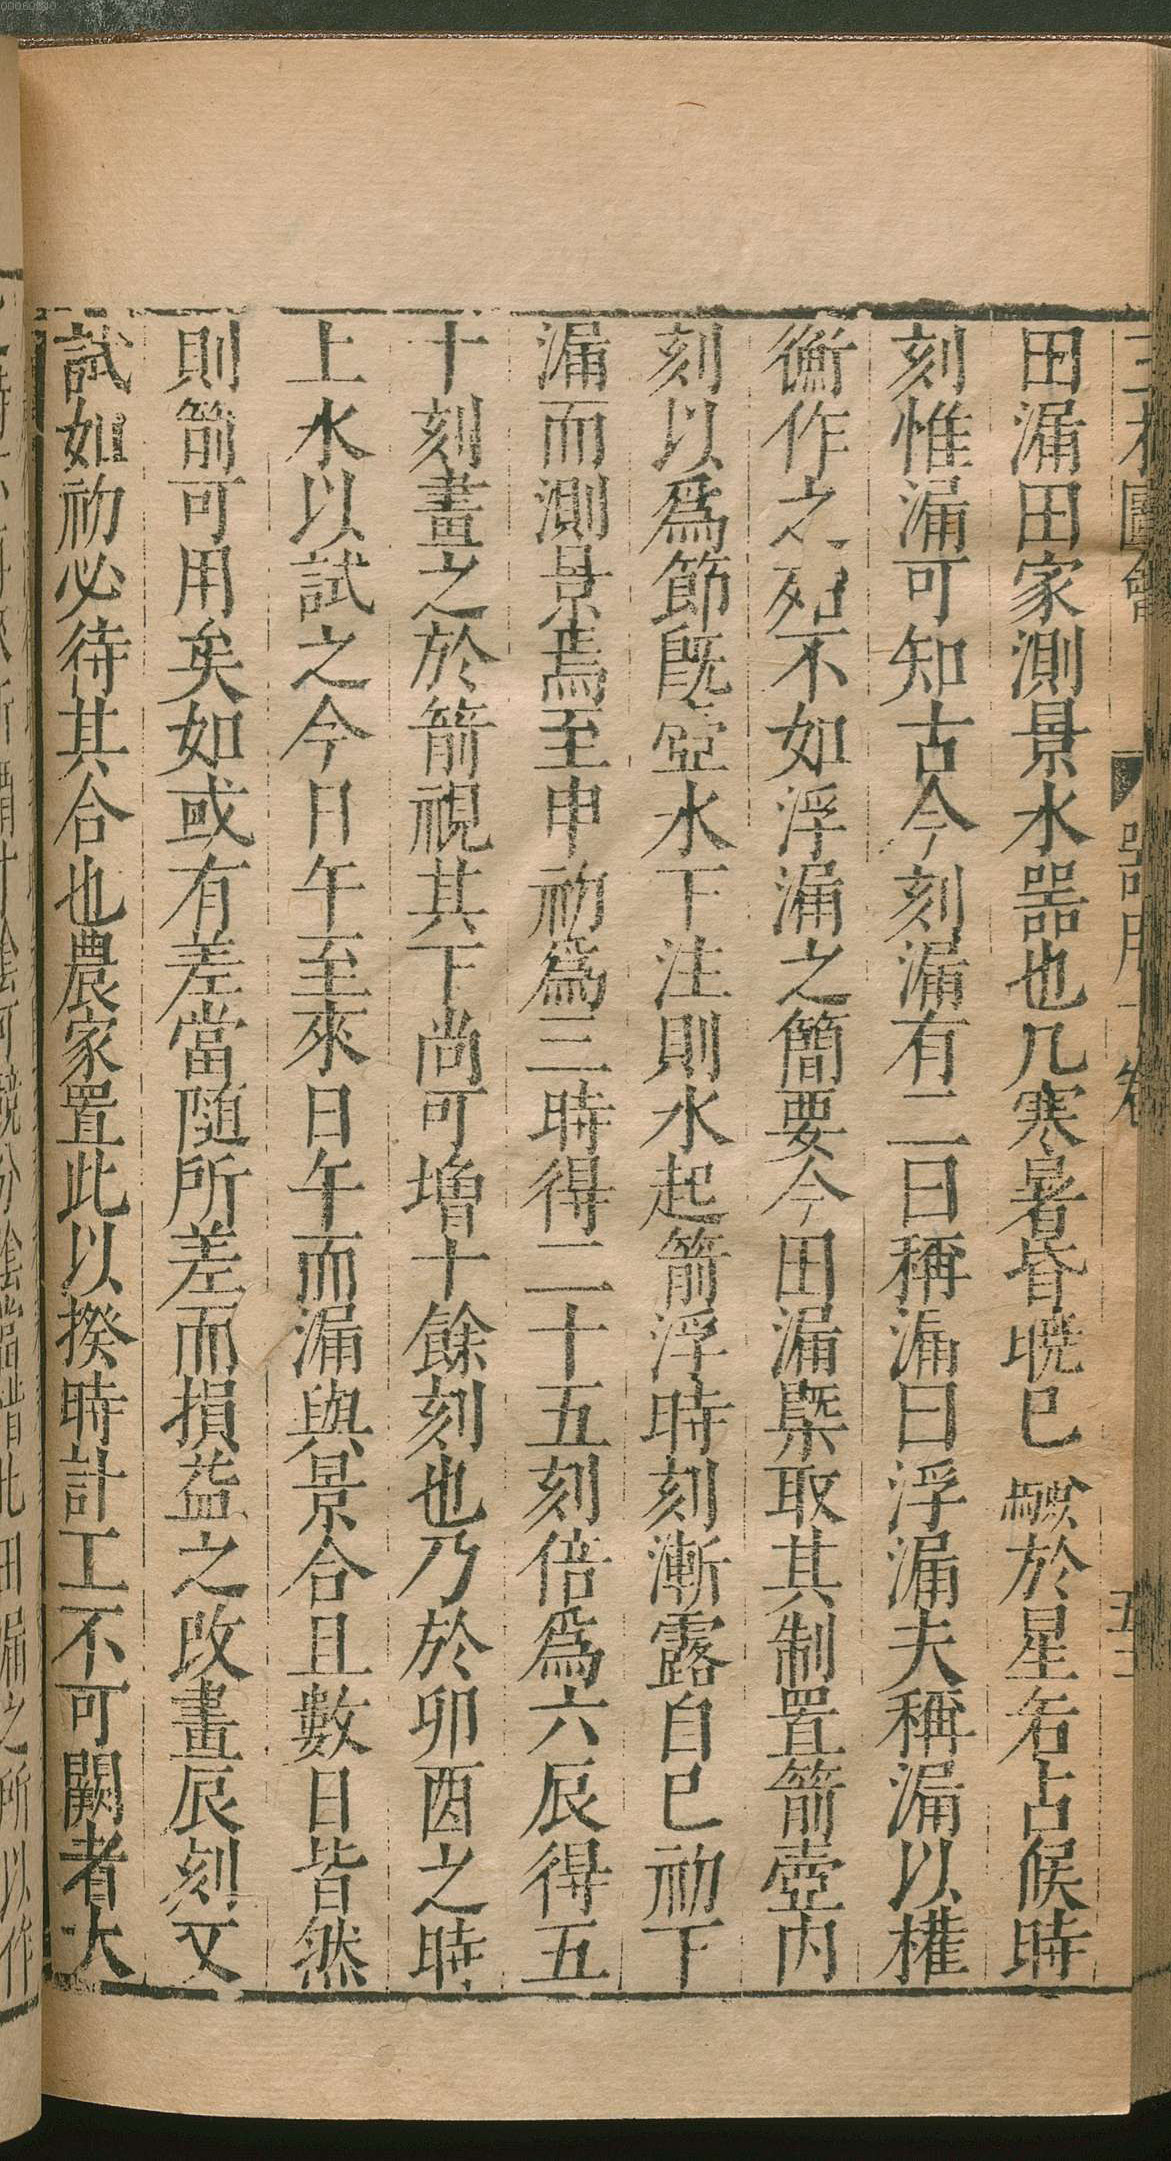 三才圖會 器用一卷
田漏田家測景水器也凡寒暑昏曉已驗於星若占候時
刻惟漏可知古今刻漏有二曰稱漏曰浮漏夫稱漏以權
衡作之殆不如浮漏之簡要今田漏槩取其制置箭壺内
刻以爲節旣壺水下注則水起箭浮時刻漸露自巳初下
漏而測景焉至申初爲三時得二十五刻倍爲六辰得五
十刻畫之於箭視其下尚可增十餘刻也乃於卯酉之時
上水以試之今日午至來日午而漏與景合且數日皆然
則箭可用矣如或有差當隨所差而損益之改畫辰刻又
試如初必待其合也農家置此以揆時計工不可闕者大